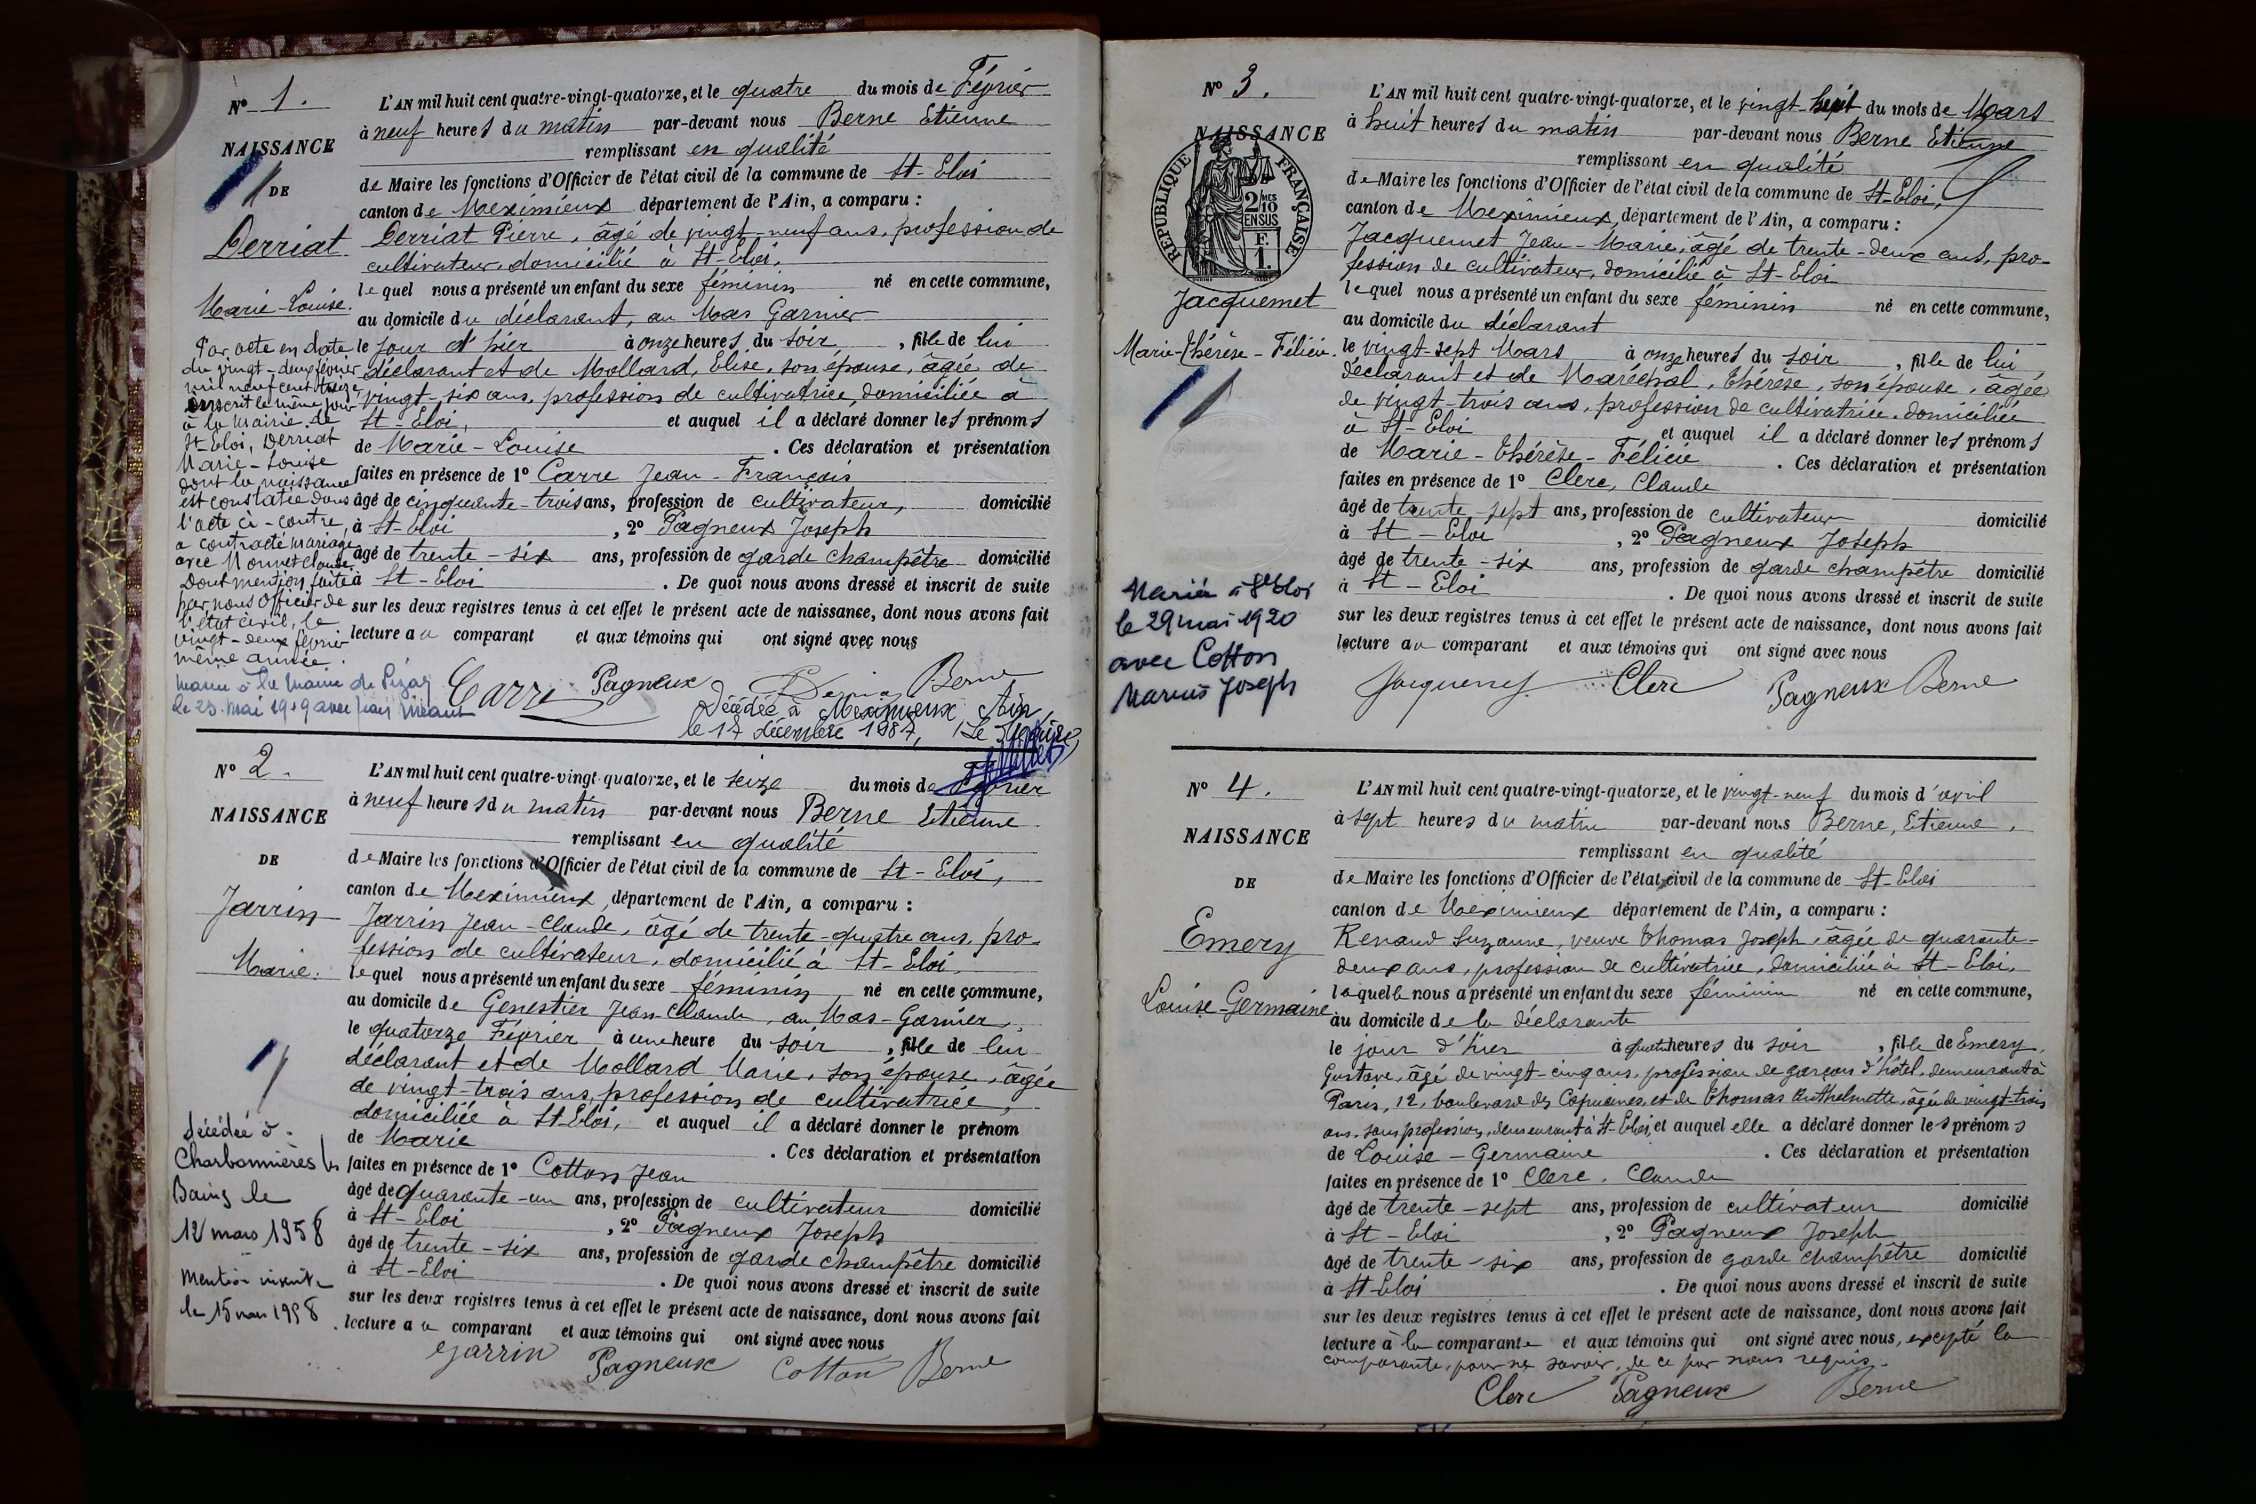 N° 1.
NAISSANCE
DE
Derriat
Marie-Louise.
L'AN mil huit cent quatre-vingt-quatorze, et le quatre du mois de Février
à neuf heures du matin par-devant nous Berne Etienne
remplissant en qualité
de Maire les fonctions d'Officier de l'état civil de la commune de St-Eloi
canton de Meximieux département de l'Ain, a comparu :
Derriat Pierre, âgé de vingt-neuf ans, profession de
cultivateur, domicilié à St-Eloi,
lequel nous a présenté un enfant du sexe féminin né en cette commune,
au domicile du déclarant, au Mas Garnier
le jour d'hier à onze heures du soir, fille de lui
déclarant et de Mollard, Elise, son épouse, âgée de
vingt-six ans, profession de cultivatrice, domiciliée à
St-Eloi, et auquel il a déclaré donner les prénoms
de Marie-Louise. Ces déclaration et présentation
faites en présence de 1° Carre Jean-François
âgé de cinquante-trois ans, profession de cultivateur, domicilié
à St-Eloi, 2° Pagneux Joseph
âgé de trente-six ans, profession de garde champêtre domicilié
à St-Eloi. De quoi nous avons dressé et inscrit de suite
sur les deux registres tenus à cet effet le présent acte de naissance, dont nous avons fait
lecture au comparant et aux témoins qui ont signé avec nous
Carre Pagneux Berne
Par acte en date
du vingt-deux février
mil neuf cent treize
inscrit le même jour
à la mairie de
St-Eloi, Derriat
Marie-Louise
dont la naissance
est constatée dans
l'acte ci-contre,
a contracté mariage
avec Monnet Claude.
Dont mention faite
par nous Officier de
l'état civil, le
vingt-deux février
même année.
à la Mairie de
mai 1919 avec
Décédée à Meximieux Ain
le 17 décembre 1987, Le Maire
N° 2.
NAISSANCE
DE
Jarrin
Marie.
L'AN mil huit cent quatre-vingt-quatorze, et le seize du mois de Février
à neuf heures du matin par-devant nous Berne Etienne
remplissant en qualité
de Maire les fonctions d'Officier de l'état civil de la commune de St-Eloi,
canton de Meximieux, département de l'Ain, a comparu :
Jarrin Jean-Claude, âgé de trente-quatre ans, pro-
fession de cultivateur, domicilié à St-Eloi,
lequel nous a présenté un enfant du sexe féminin né en cette commune,
au domicile de Genestier Jean-Claude, au Mas-Garnier,
le quatorze Février à une heure du soir, fille de lui
déclarant et de Mollard Marie, son épouse, âgée
de vingt-trois ans, profession de cultivatrice,
domiciliée à St-Eloi, et auquel il a déclaré donner le prénom
de Marie. Ces déclaration et présentation
faites en présence de 1° Cotton Jean
âgé de quarante-un ans, profession de cultivateur domicilié
à St-Eloi, 2° Pagneux Joseph
âgé de trente-six ans, profession de garde champêtre domicilié
à St-Eloi. De quoi nous avons dressé et inscrit de suite
sur les deux registres tenus à cet effet le présent acte de naissance, dont nous avons fait
lecture au comparant et aux témoins qui ont signé avec nous
Jarrin Pagneux Cotton Berne
Décédée à
Charbonnières les
Bains le
12 mars 1958
Mention inscrite
le 15 mars 1958
N° 3.
NAISSANCE
REPUBLIQUE FRANÇAISE
2/10
EN SUS
F.
1.
Jacquemet
Marie-Thérèse-Félicie.
L'AN mil huit cent quatre-vingt-quatorze, et le vingt-huit du mois de Mars
à huit heures du matin par-devant nous Berne Etienne
remplissant en qualité
de Maire les fonctions d'Officier de l'état civil de la commune de St-Eloi,
canton de Meximieux, département de l'Ain, a comparu :
Jacquemet Jean-Marie, âgé de trente-deux ans, pro-
fession de cultivateur, domicilié à St-Eloi
lequel nous a présenté un enfant du sexe féminin né en cette commune,
au domicile du déclarant
le vingt-sept Mars à onze heures du soir, fille de lui
déclarant et de Maréchal, Thérèse, son épouse, âgée
de vingt-trois ans, profession de cultivatrice, domiciliée
à St-Eloi et auquel il a déclaré donner les prénoms
de Marie-Thérèse-Félicie. Ces déclaration et présentation
faites en présence de 1° Clerc, Claude
âgé de trente-sept ans, profession de cultivateur domicilié
à St-Eloi, 2° Pagneux Joseph
âgé de trente-six ans, profession de garde champêtre domicilié
à St-Eloi. De quoi nous avons dressé et inscrit de suite
sur les deux registres tenus à cet effet le présent acte de naissance, dont nous avons fait
lecture au comparant et aux témoins qui ont signé avec nous
Jacquemet Clerc Pagneux Berne
Mariée à St Eloi
le 29 mai 1920
avec Cotton
Marius Joseph
N° 4.
NAISSANCE
DE
Emery
Louise-Germaine
L'AN mil huit cent quatre-vingt-quatorze, et le vingt-neuf du mois d'avril
à sept heures du matin par-devant nous Berne, Etienne,
remplissant en qualité
de Maire les fonctions d'Officier de l'état civil de la commune de St-Eloi
canton de Meximieux département de l'Ain, a comparu :
Renaud Suzanne, veuve Thomas Joseph, âgée de quarante-
deux ans, profession de cultivatrice, domiciliée à St-Eloi,
laquelle nous a présenté un enfant du sexe féminin né en cette commune,
au domicile de la déclarante
le jour d'hier à quatre heures du soir, fille de Emery,
Gustave, âgé de vingt-cinq ans, profession de garçon d'hôtel, demeurant à
Paris, 12, boulevard des Capucines, et de Thomas Anthelmette, âgée de vingt-trois
ans, sans profession, demeurant à St-Eloi, et auquel elle a déclaré donner les prénoms
de Louise-Germaine. Ces déclaration et présentation
faites en présence de 1° Clerc, Claude
âgé de trente-sept ans, profession de cultivateur domicilié
à St-Eloi, 2° Pagneux Joseph
âgé de trente-six ans, profession de garde champêtre domicilié
à St-Eloi. De quoi nous avons dressé et inscrit de suite
sur les deux registres tenus à cet effet le présent acte de naissance, dont nous avons fait
lecture à la comparante et aux témoins qui ont signé avec nous, excepté la
comparante, pour ne savoir, de ce par nous requis.
Clerc Pagneux Berne